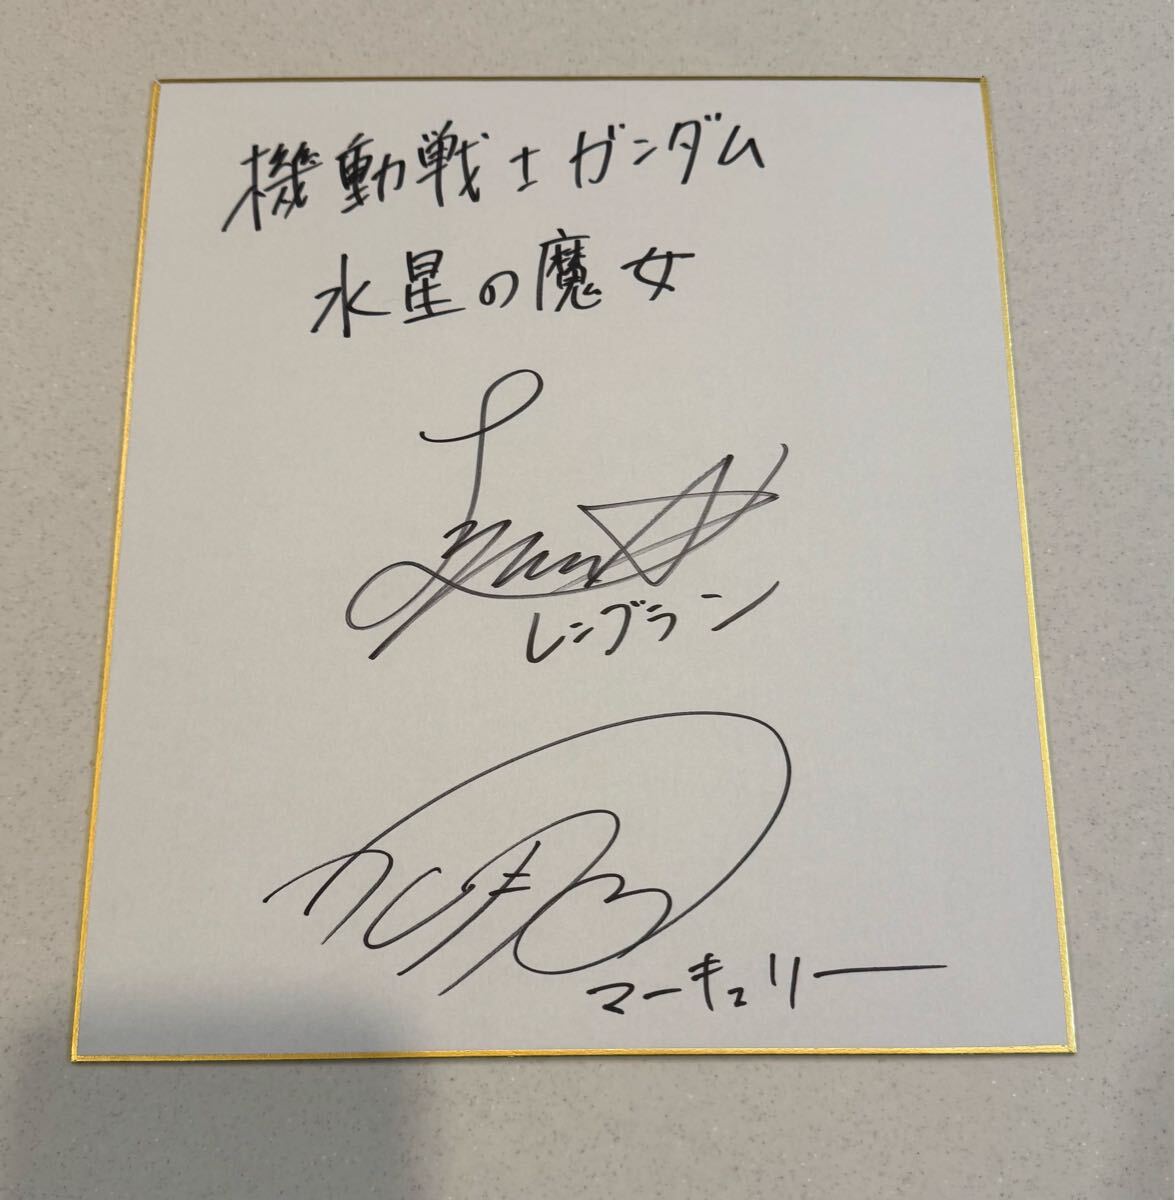 機動戦士ガンダム
水星の魔女
レンブラン
マーキュリー